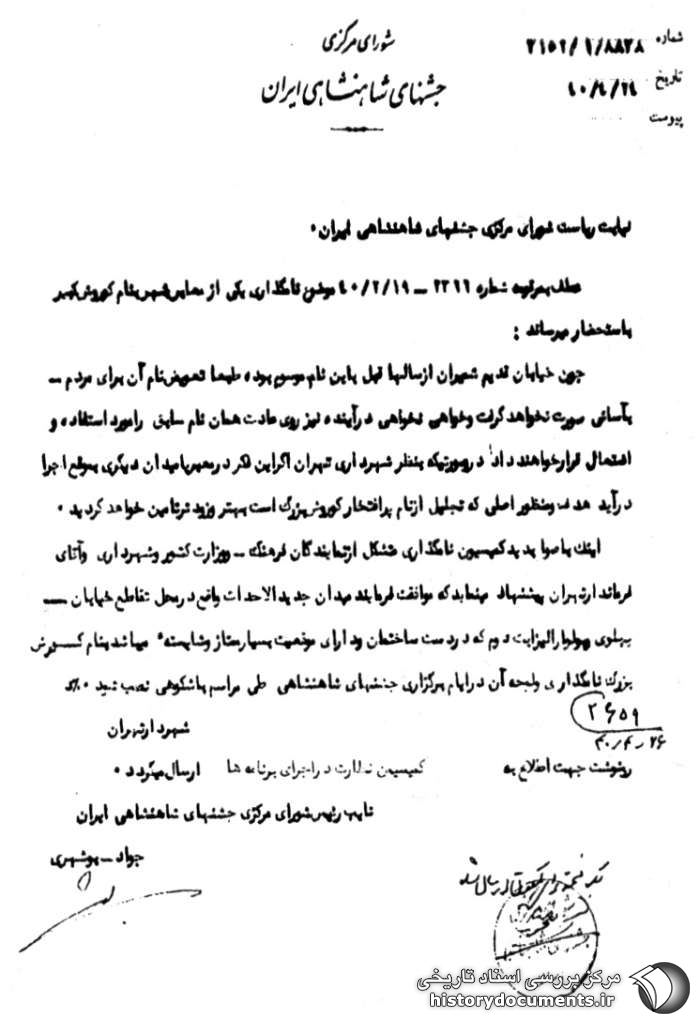 شورای مرکزی
جشنهای شاهنشاهی ایران
شماره ۲۱۵۲/۱/۸۸۲۸
تاریخ ۴۰/۴/۲۴
پیوست
نیابت ریاست شورای مرکزی جشنهای شاهنشاهی ایران۰
عطف بمرقومه شماره ۲۳۶۶ – ۴۰/۲/۱۹ موضوع نامگذاری یکی از معابر شهر بنام کوروش کبیر
باستحضار میرساند :
چون خیابان قدیم شمیران از سالها قبل باین نام موسوم بوده طبعا تعویض نام آن برای مردم –
بآسانی صورت نخواهد گرفت وخواهی نخواهی درآینده نیز روی عادت همان نام سابق رامورد استفاده و
اشتعمال قرارخواهند داد درصورتیکه بنظر شهرداری تهران اگراین فکر درمعبریامیدان دیگری بموقع اجرا
درآید هدف ومنظور اصلی که تجلیل ازنام پرافتخار کوروش بزرگ است بهتر وزود ترتامین خواهد گردید ۰
اینك باصوابدید کمیسیون نامگذاری متشکل ازنمایندگان فرهنگ – ووزارت کشور وشهرداری وآقای
فرماندارتهران پیشنهاد مینماید که موافقت فرمایند میدان جدیدالاحداث واقع درمحل تقاطع خیابان –
پهلوی وبولوارالیزابت دوم که دردست ساختمان ودارای موقعیت بسیارممتاز وشایسته میباشد بنام کوروش
بزرگ نامگذاری ولوحه آن درایام برگزاری جشنهای شاهنشاهی طی مراسم باشکوهی نصب شود ۰
شهردارتهران
۲۶۵۹
۴۰/۴/۲۶
رونوشت جهت اطلاع به کمیسیون نظارت دراجرای برنامه ها ارسال میگردد ۰
نایب رئیس شورای مرکزی جشنهای شاهنشاهی ایران
جواد – بوشهری
مرکز بررسی اسناد تاریخی
historydocuments.ir